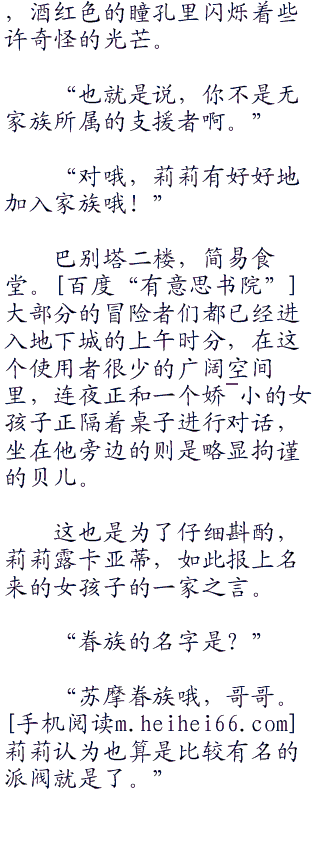 ，酒红色的瞳孔里闪烁着些
许奇怪的光芒。
“也就是说，你不是无
家族所属的支援者啊。”
“对哦，莉莉有好好地
加入家族哦！”
巴别塔二楼，简易食
堂。[百度“有意思书院”]
大部分的冒险者们都已经进
入地下城的上午时分，在这
个使用者很少的广阔空间
里，连夜正和一个娇¯小的女
孩子正隔着桌子进行对话，
坐在他旁边的则是略显拘谨
的贝儿。
这也是为了仔细斟酌，
莉莉露卡亚蒂，如此报上名
来的女孩子的一家之言。
“眷族的名字是？”
“苏摩眷族哦，哥哥。
[手机阅读m.heihei66.com]
莉莉认为也算是比较有名的
派阀就是了。”